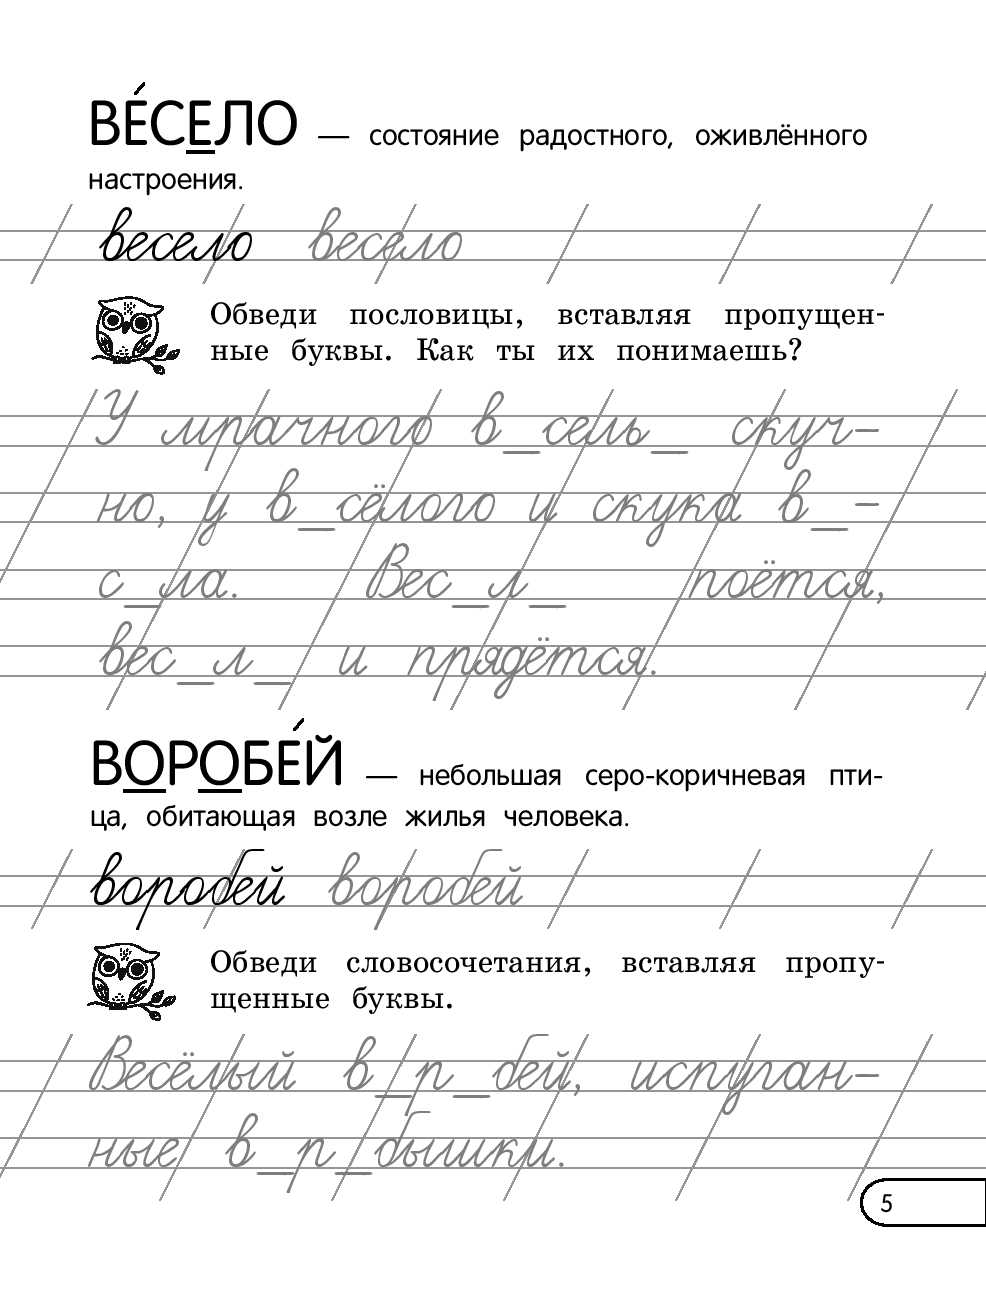 ВЕ́СЕЛО — состояние радостного, оживлённого
настроения.
весело весело
Обведи пословицы, вставляя пропущен-
ные буквы. Как ты их понимаешь?
У мрачного в_сель_ скуч-
но, у в_сёлого и скука в_-
с_ла. Вес_л_ поётся,
вес_л_ и прядётся.
ВОРОБЕ́Й — небольшая серо-коричневая пти-
ца, обитающая возле жилья человека.
воробей воробей
Обведи словосочетания, вставляя пропу-
щенные буквы.
Весёлый в_р_бей, испуган-
ные в_р_бышки.
5